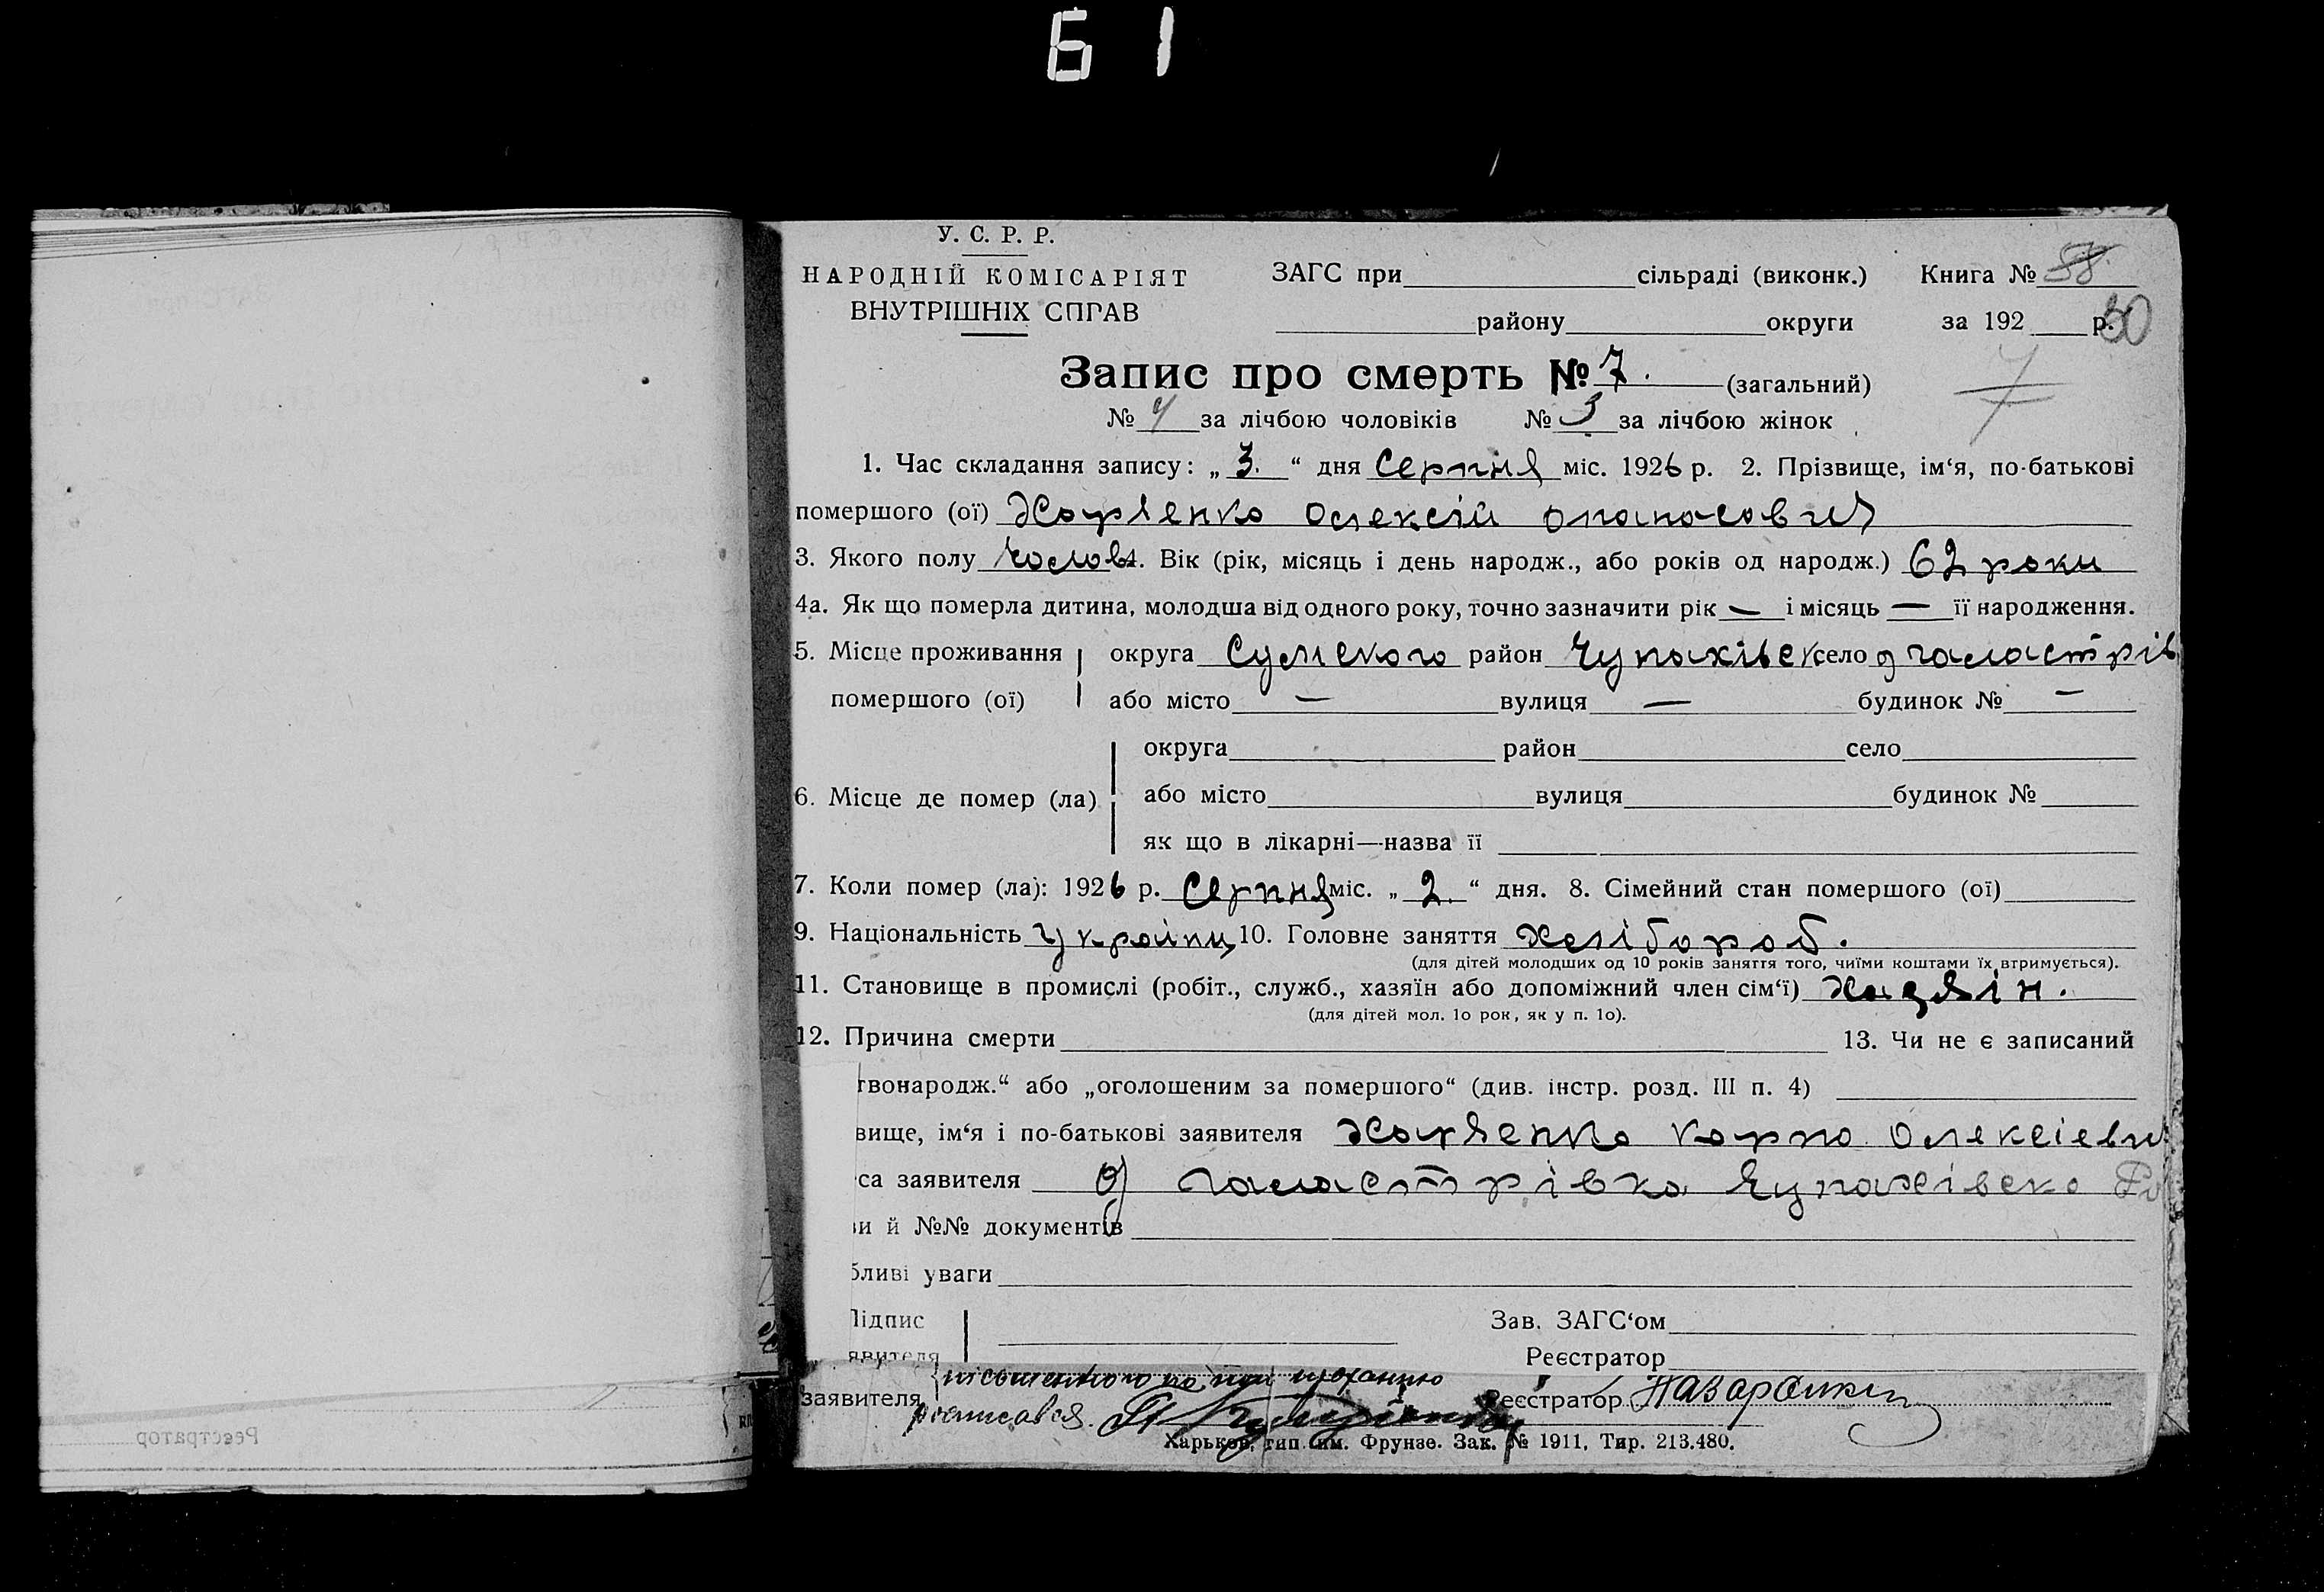 61
У. С. Р. Р.
НАРОДНІЙ КОМІСАРІЯТ
ВНУТРІШНІХ СПРАВ
ЗАГС при сільраді (виконк.) Книга № 58
району округи за 192 р. 30
Запис про смерть № 7. (загальний) 7
№ 4 за лічбою чоловіків № 3 за лічбою жінок
1. Час складання запису: „ 3. “ дня Серпня міс. 1926 р. 2. Прізвище, ім‘я, по-батькові
помершого (ої) Олексій Опанасович
3. Якого полу Чолов 4. Вік (рік, місяць і день народж., або років од народж.) 62 роки
4а. Як що померла дитина, молодша від одного року, точно зазначити рік — і місяць — її народження.
5. Місце проживання округа Сумского район Чупахівск село
помершого (ої) або місто — вулиця — будинок № —
округа район село
6. Місце де помер (ла) або місто вулиця будинок №
як що в лікарні—назва її
7. Коли помер (ла): 1926 р. Серпня міс. „ 2. “ дня. 8. Сімейний стан помершого (ої)
9. Національність Українц 10. Головне заняття Хлібороб.
(для дітей молодших од 10 років заняття того, чиїми коштами їх втримується).
11. Становище в промислі (робіт., служб., хазяїн або допоміжний член сім‘ї) Хазяін.
(для дітей мол. 1о рок, як у п. 1о).
12. Причина смерти 13. Чи не є записаний
твонародж.“ або „оголошеним за помершого“ (див. інстр. розд. III п. 4)
вище, ім‘я і по-батькові заявителя Карпо Олексіеви
са заявителя Чупахівско
и й №№ документів
бливі уваги
Підпис Зав. ЗАГС‘ом
явителя Реєстратор
заявителя росписався. Реєстратор
Харьков, тип. им. Фрунзе. Зак. № 1911, Тир. 213.480.
Реєстратор